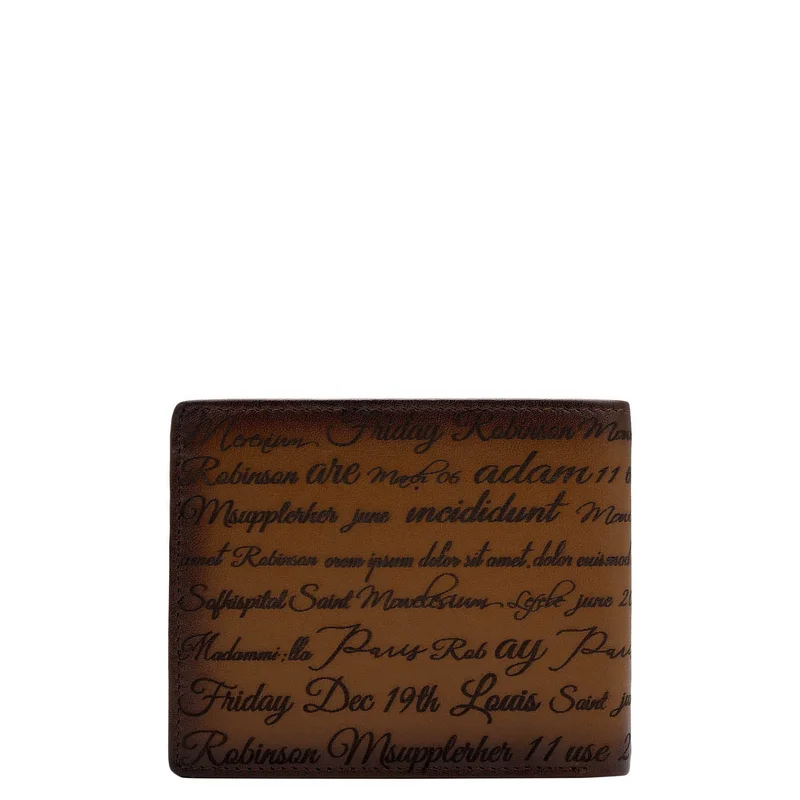 Merenium Friday Robinson Mon
Robinson are March 06 adam 11
Msupplerher june incididunt Mon
amet Robinson orem ipsum dolor sit amet, dolor euismod
Saint june 20
Madammi:lla Paris Rob ay Paris
Friday Dec 19th Louis Saint ju
Robinson Msupplerher 11 use 2